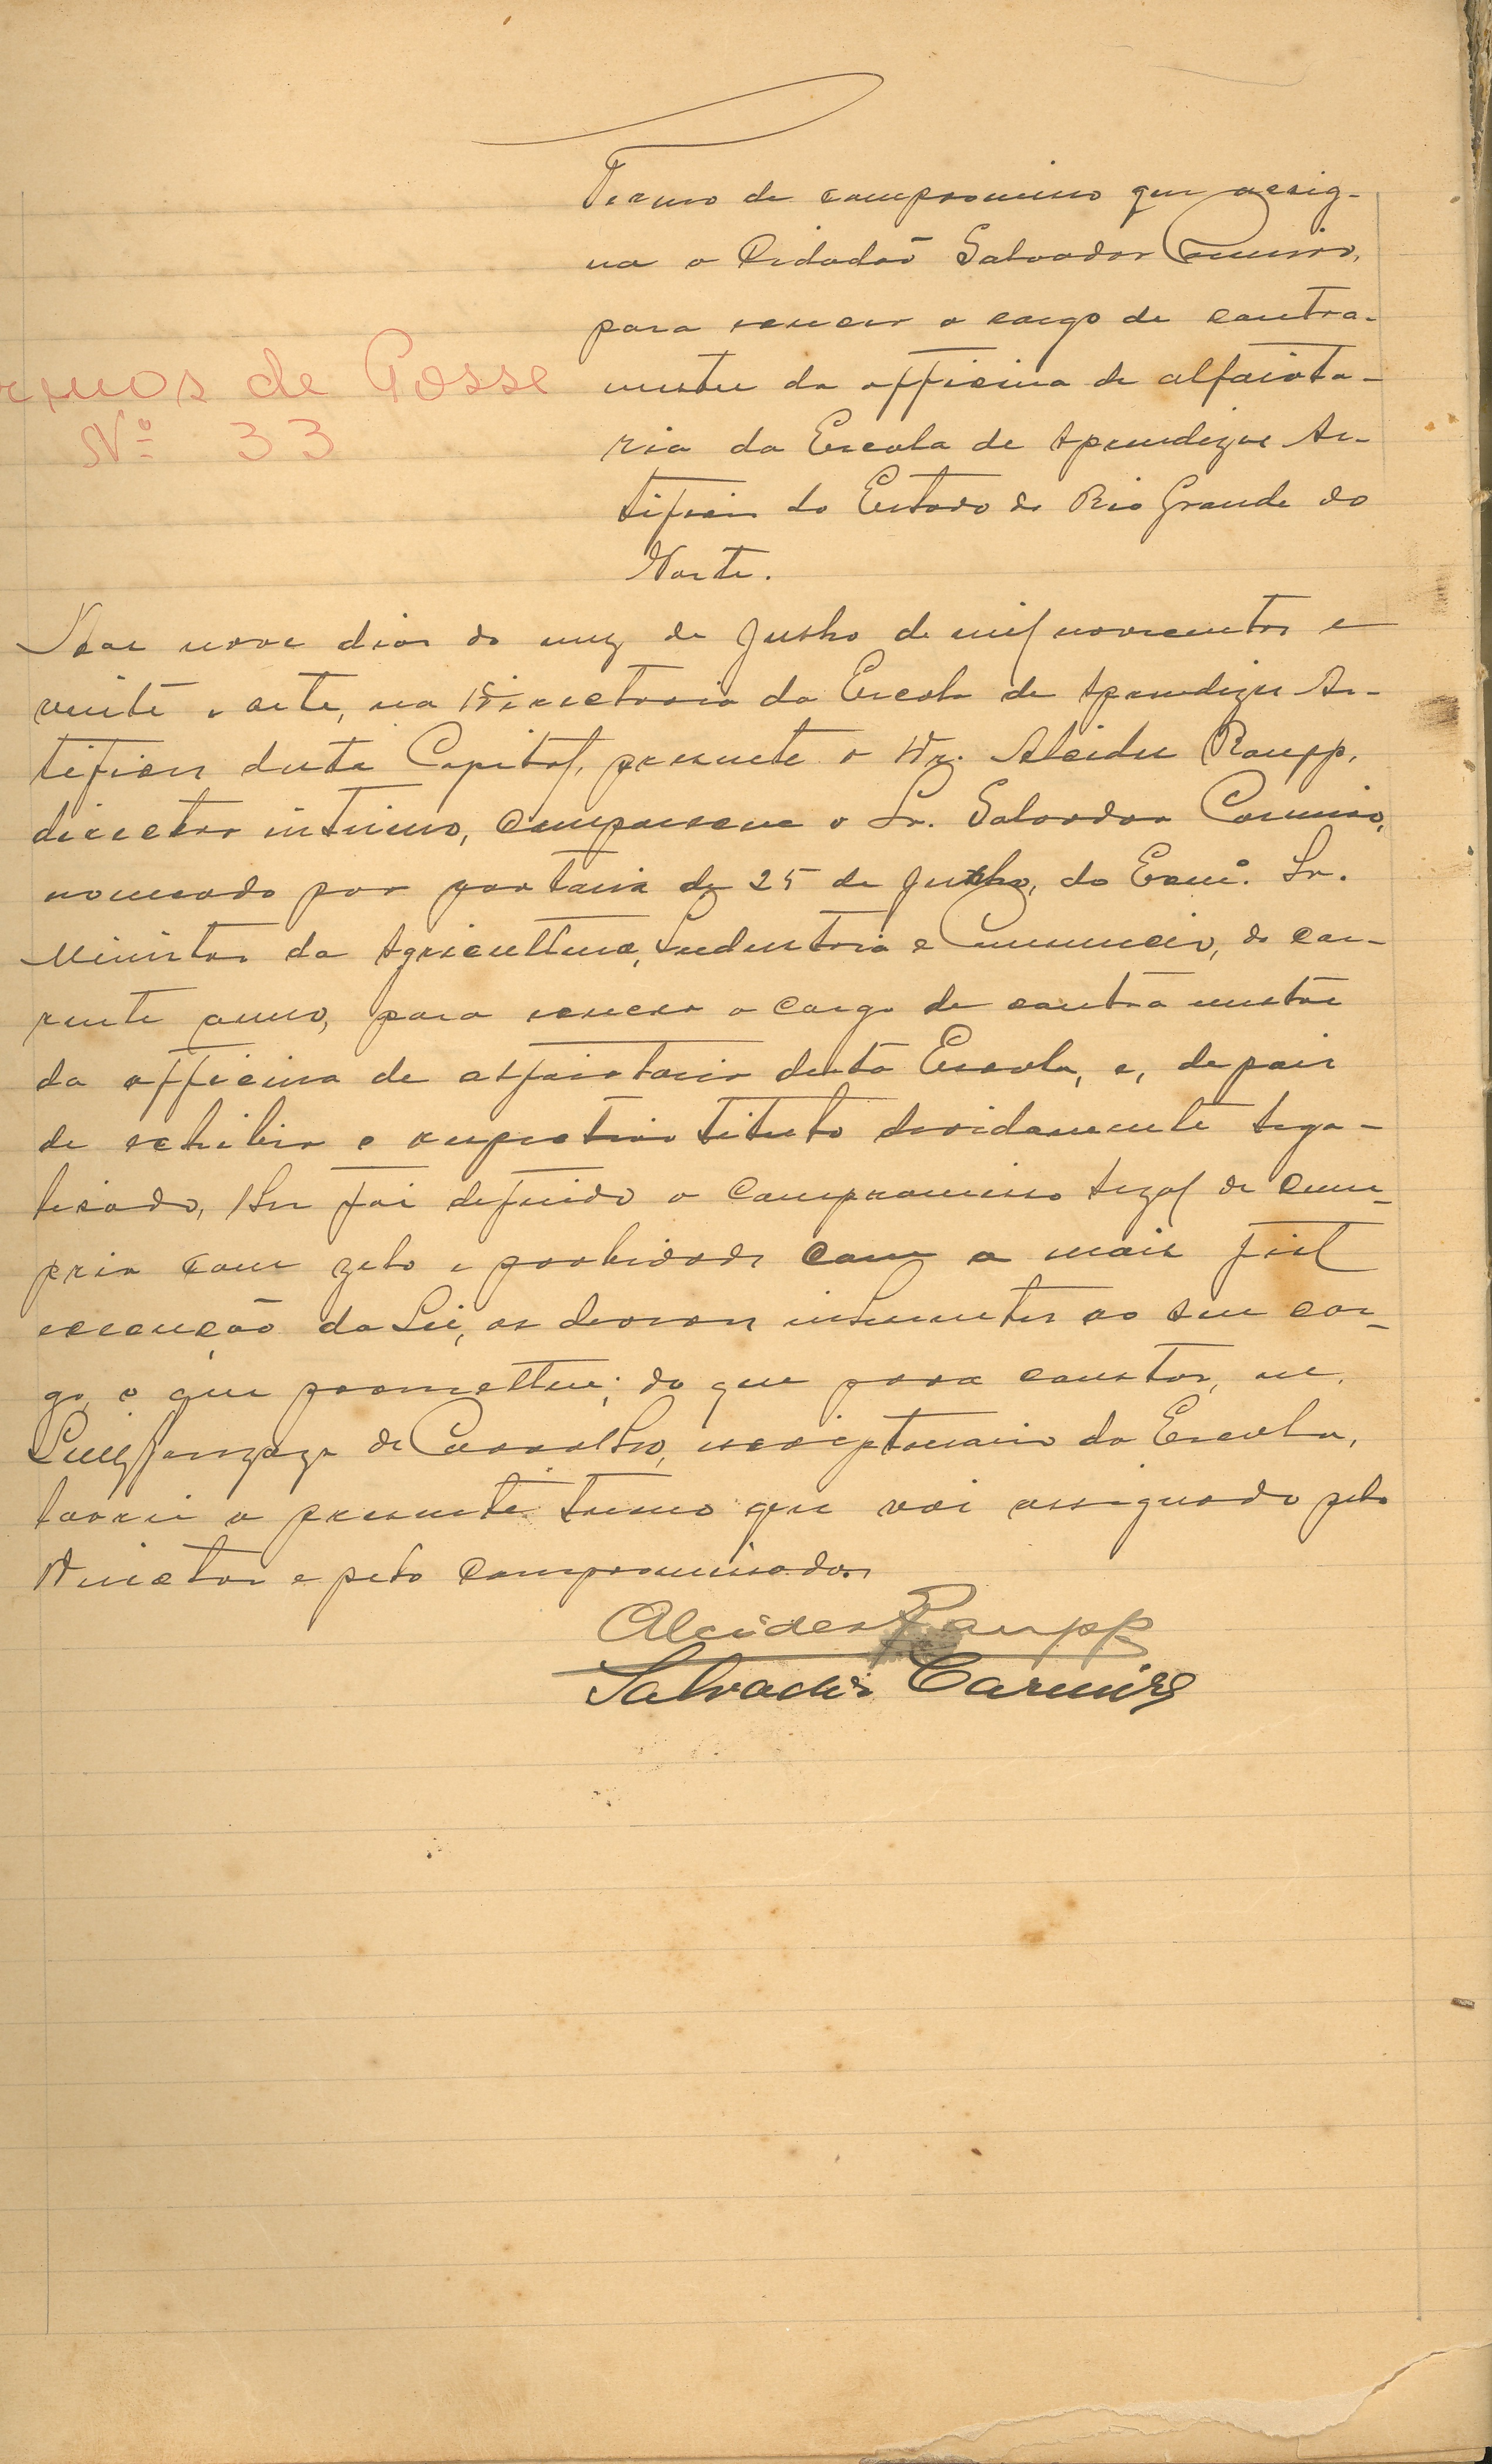 Termo de compromisso que assig-
na o Cidadão Salvador Carmiro,
para exercer o cargo de contra-
mestre da officina de alfaiata-
ria da Escola de Aprendizes Ar-
tifices do Estado do Rio Grande do
Norte.
Termos de Posse
Nº 33
Aos nove dias do mez de Julho de mil novecentos e
vinte e sete, na Directoria da Escola de Aprendizes Ar-
tifices desta Capital, presente o Dr. Alcides Raupp,
director interino, compareceu o Sr. Salvador Carmiro,
nomeado por portaria de 25 de Junho, do Exmº. Sr.
Ministro da Agricultura, Industria e Commercio, do cor-
rente anno, para exercer o cargo de contra mestre
da officina de alfaiataria desta Escola, e, depois
de exhibir o respectivo titulo devidamente lega-
lisado, lhe foi deferido o compromisso legal de cum-
prir com zelo e probidade com a mais fiel
execução da Lei, os deveres inherentes ao seu car-
go, o que prometteu; do que para constar, eu,
Luiz Gonzaga de Carvalho, escripturario da Escola,
lavrei o presente termo que vai assignado pelo
Director e pelo compromissado.
Alcides Raupp
Salvador Carmiro